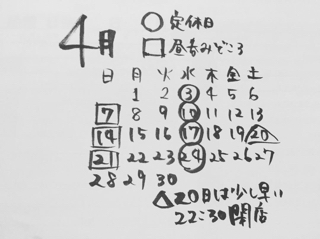 4月
○定休日
□昼呑みどころ
日 月 火 水 木 金 土
1 2 3 4 5 6
7 8 9 10 11 12 13
14 15 16 17 18 19 20
21 22 23 24 25 26 27
28 29 30
△20日は少し早い
22:30閉店